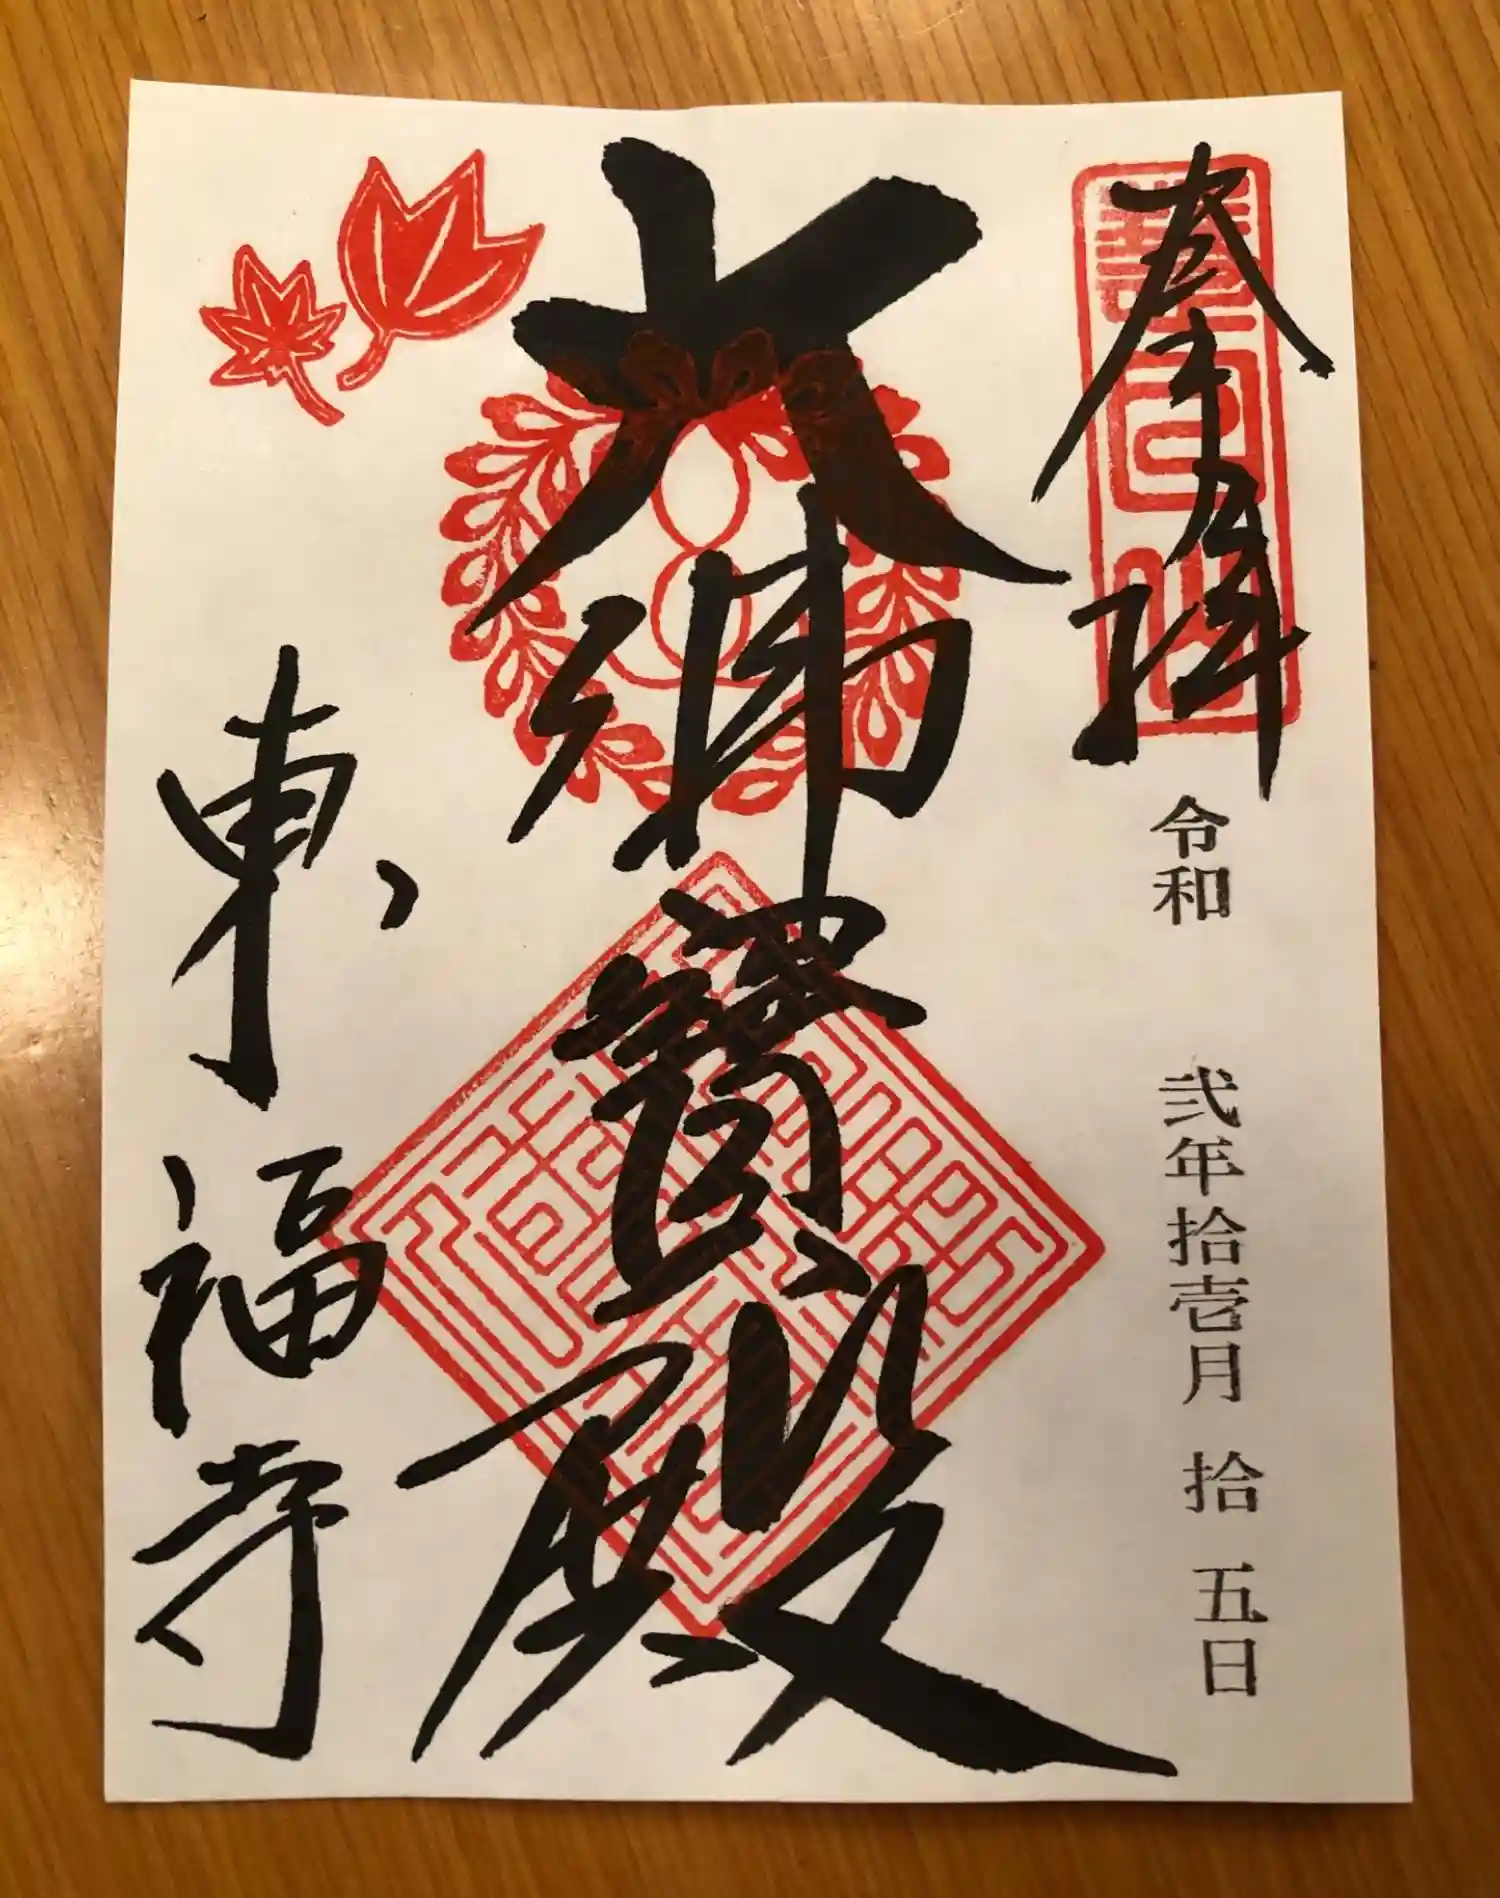 奉拝
令和 弐年拾壱月 拾 五日
大佛寳殿
東福寺